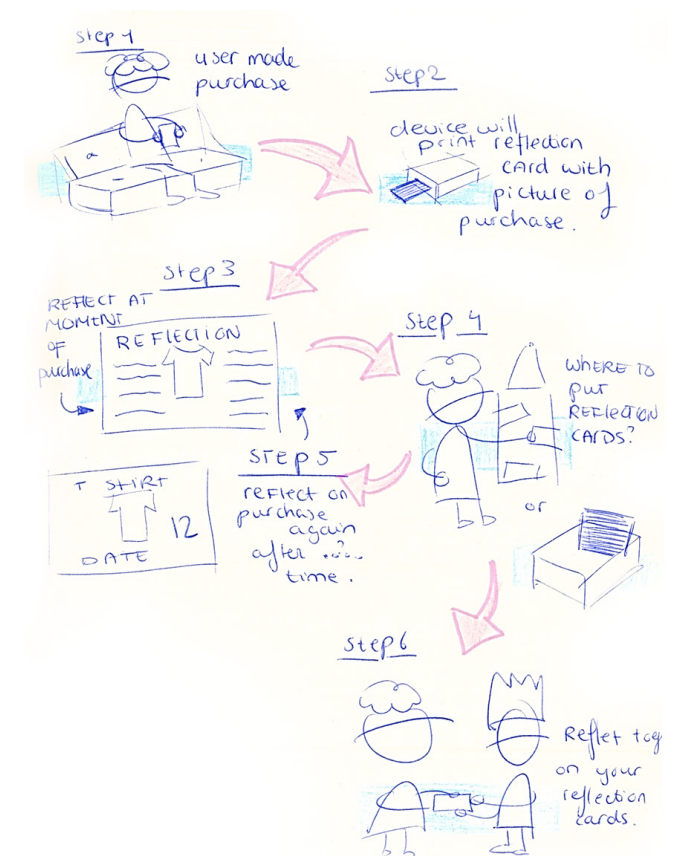 Step 1
user made
purchase
Step2
device will
print reflection
card with
picture of
purchase.
Step 3
REFLECT AT
MOMENT
OF
purchase
REFLECTION
Step 4
WHERE TO
put
REFLECTION
CARDS?
or
STEP 5
reflect on
purchase
again
after ..?..
time.
T SHIRT
12
DATE
Step 6
Reflet tog
on your
reflection
cards.